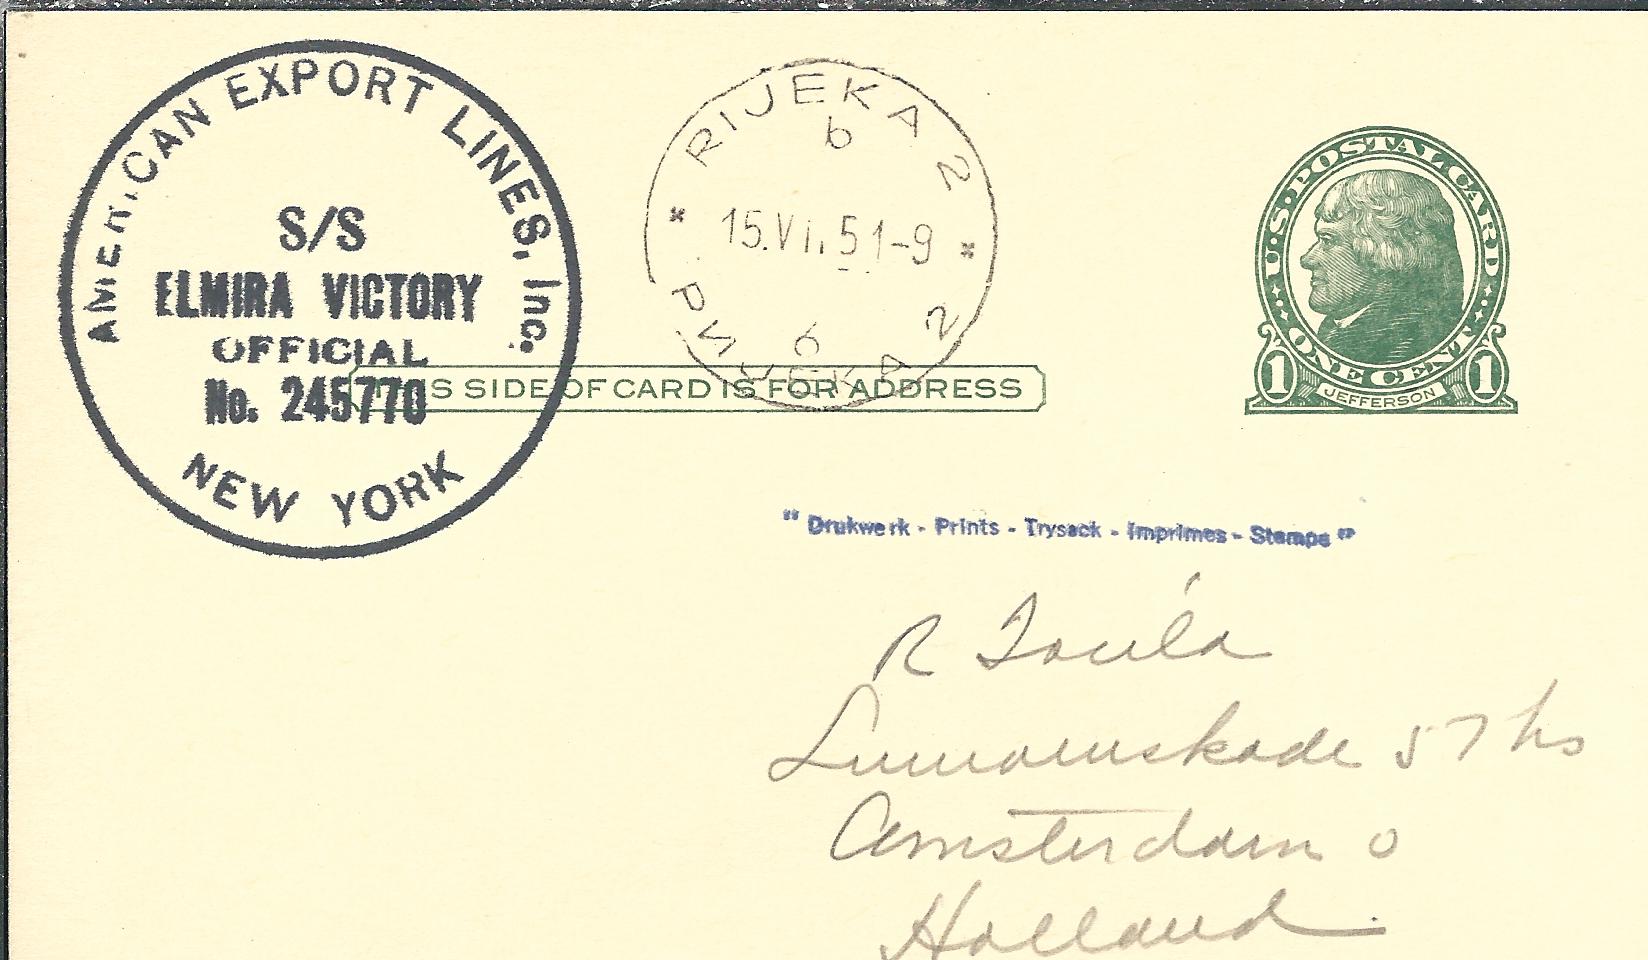 AMERICAN EXPORT LINES, Inc.
S/S
ELMIRA VICTORY
OFFICIAL
No. 245770
NEW YORK
RIJEKA 2
b
15.VI.51-9
б
РИЈЕКА 2
U·S·POSTAL CARD
ONE CENT
1 JEFFERSON 1
THIS SIDE OF CARD IS FOR ADDRESS
" Drukwerk - Prints - Trysack - Imprimes - Stamps "
R
57 hs
Amsterdam O
Holland